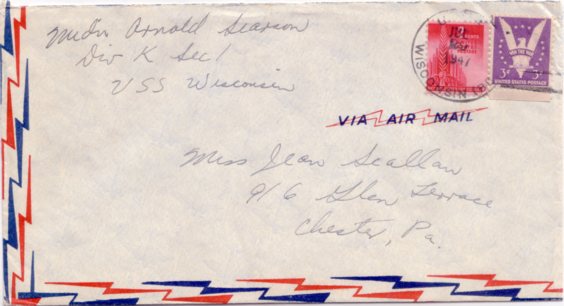 Midn Arnold Searson
Div K Sec 1
USS Wisconsin
JUL
1947
WISCONSIN
3¢ 3¢
UNITED STATES POSTAGE
VIA AIR MAIL
Miss Jean Scallan
916 Glen Terrace
Chester, Pa.